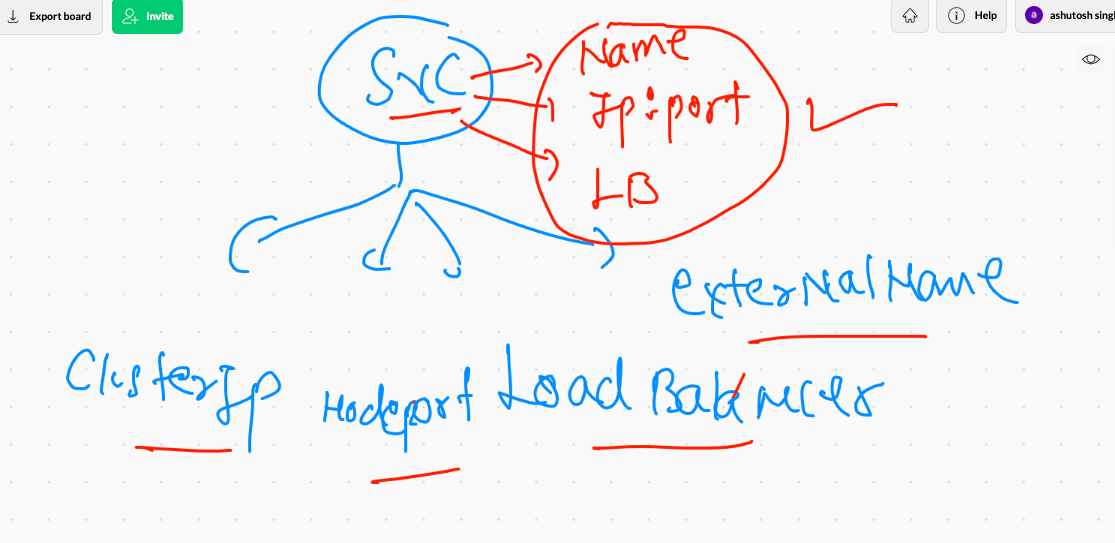 Export board
Invite
Help
ashutosh singl
SVC
Name
Ip:port
LB
ExternalName
ClusterIp
Nodeport
Load Balancer